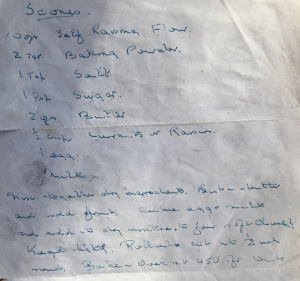 Scones.
Self Raising Flour.
2 Tsp Baking Powder.
1 Tsp Salt
1 Tsp Sugar.
2 ozs Butter
½ cup Currants or Raisins.
1 egg
Milk
together dry ingredients. Rub in butter
and add fruit. egg & milk
and add to dry mixture to form soft dough
Knead lightly. Roll out cut to 2 inch
Bake in Oven at 450 for